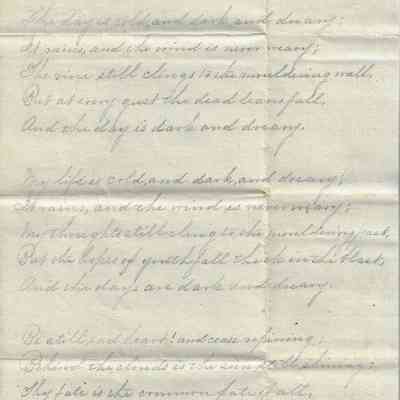 The day is cold, and dark, and dreary;
It rains, and the wind is never weary;
The vine still clings to the mouldering wall,
But at every gust the dead leaves fall,
And the day is dark and dreary.
My life is cold, and dark, and dreary;
It rains, and the wind is never weary;
My thoughts still cling to the mouldering past,
But the hopes of youth fall thick in the blast,
And the days are dark and dreary.
Be still, sad heart! and cease repining;
Behind the clouds is the sun still shining;
Thy fate is the common fate of all,